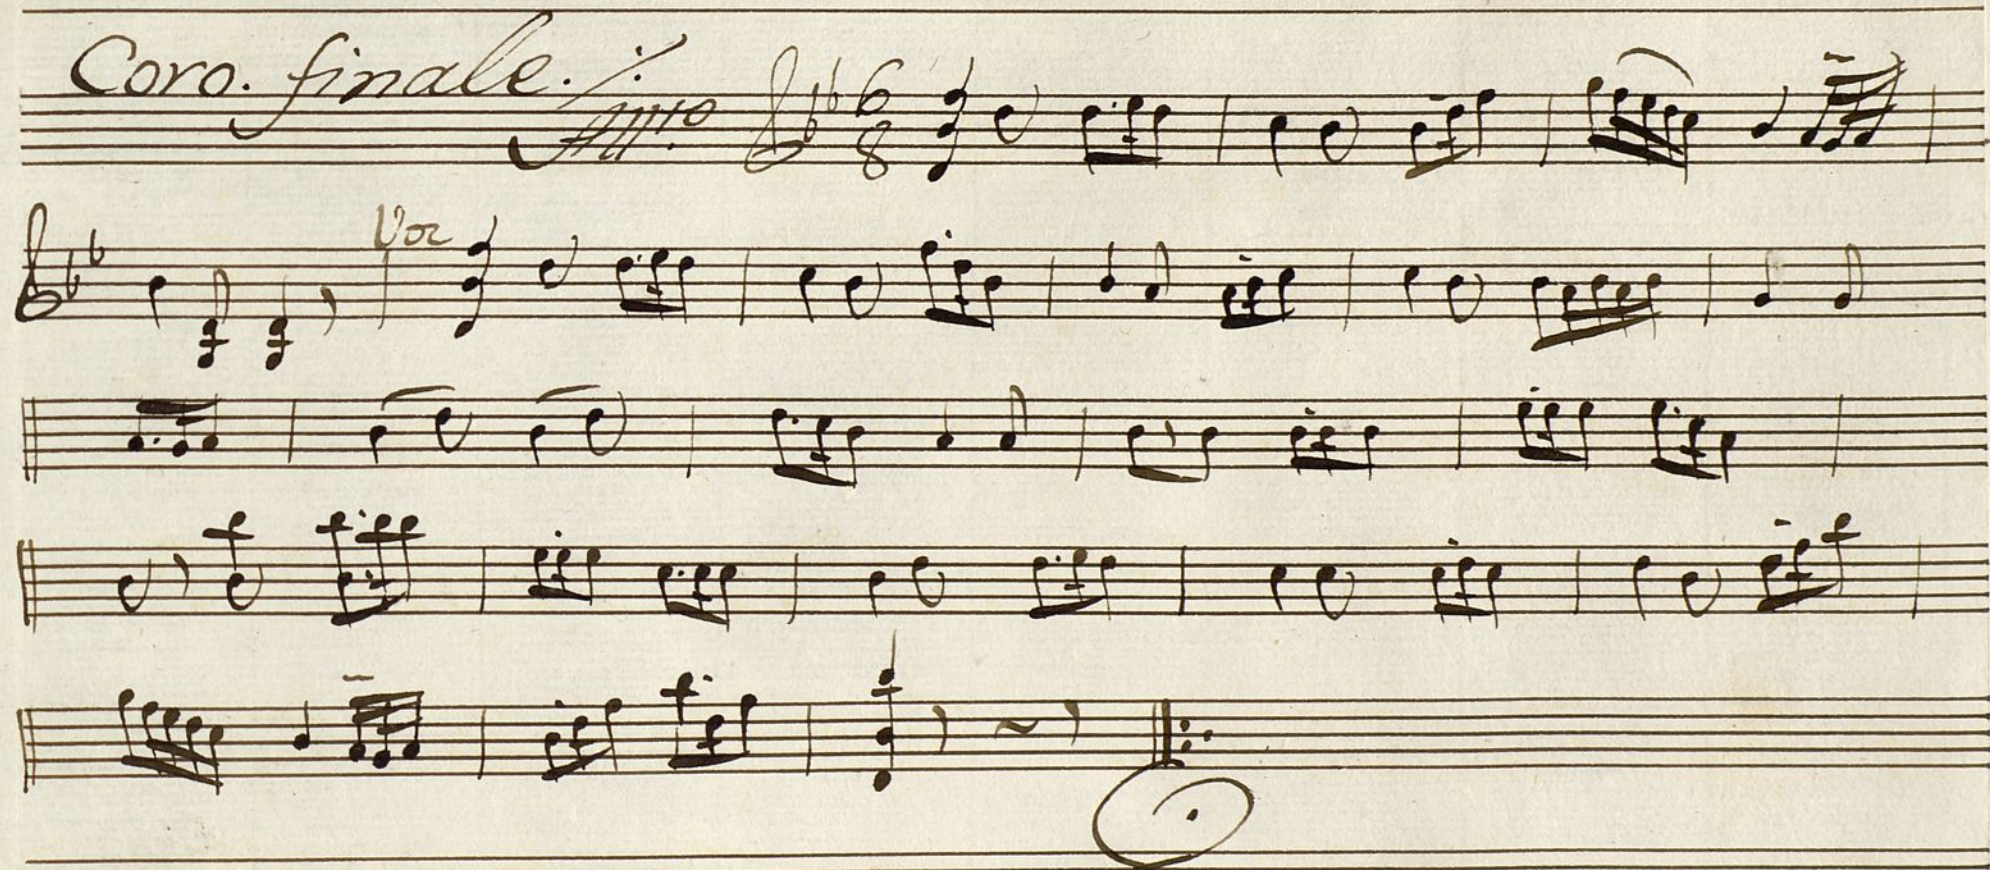 Coro. finale. All.ro
6
8
Voz